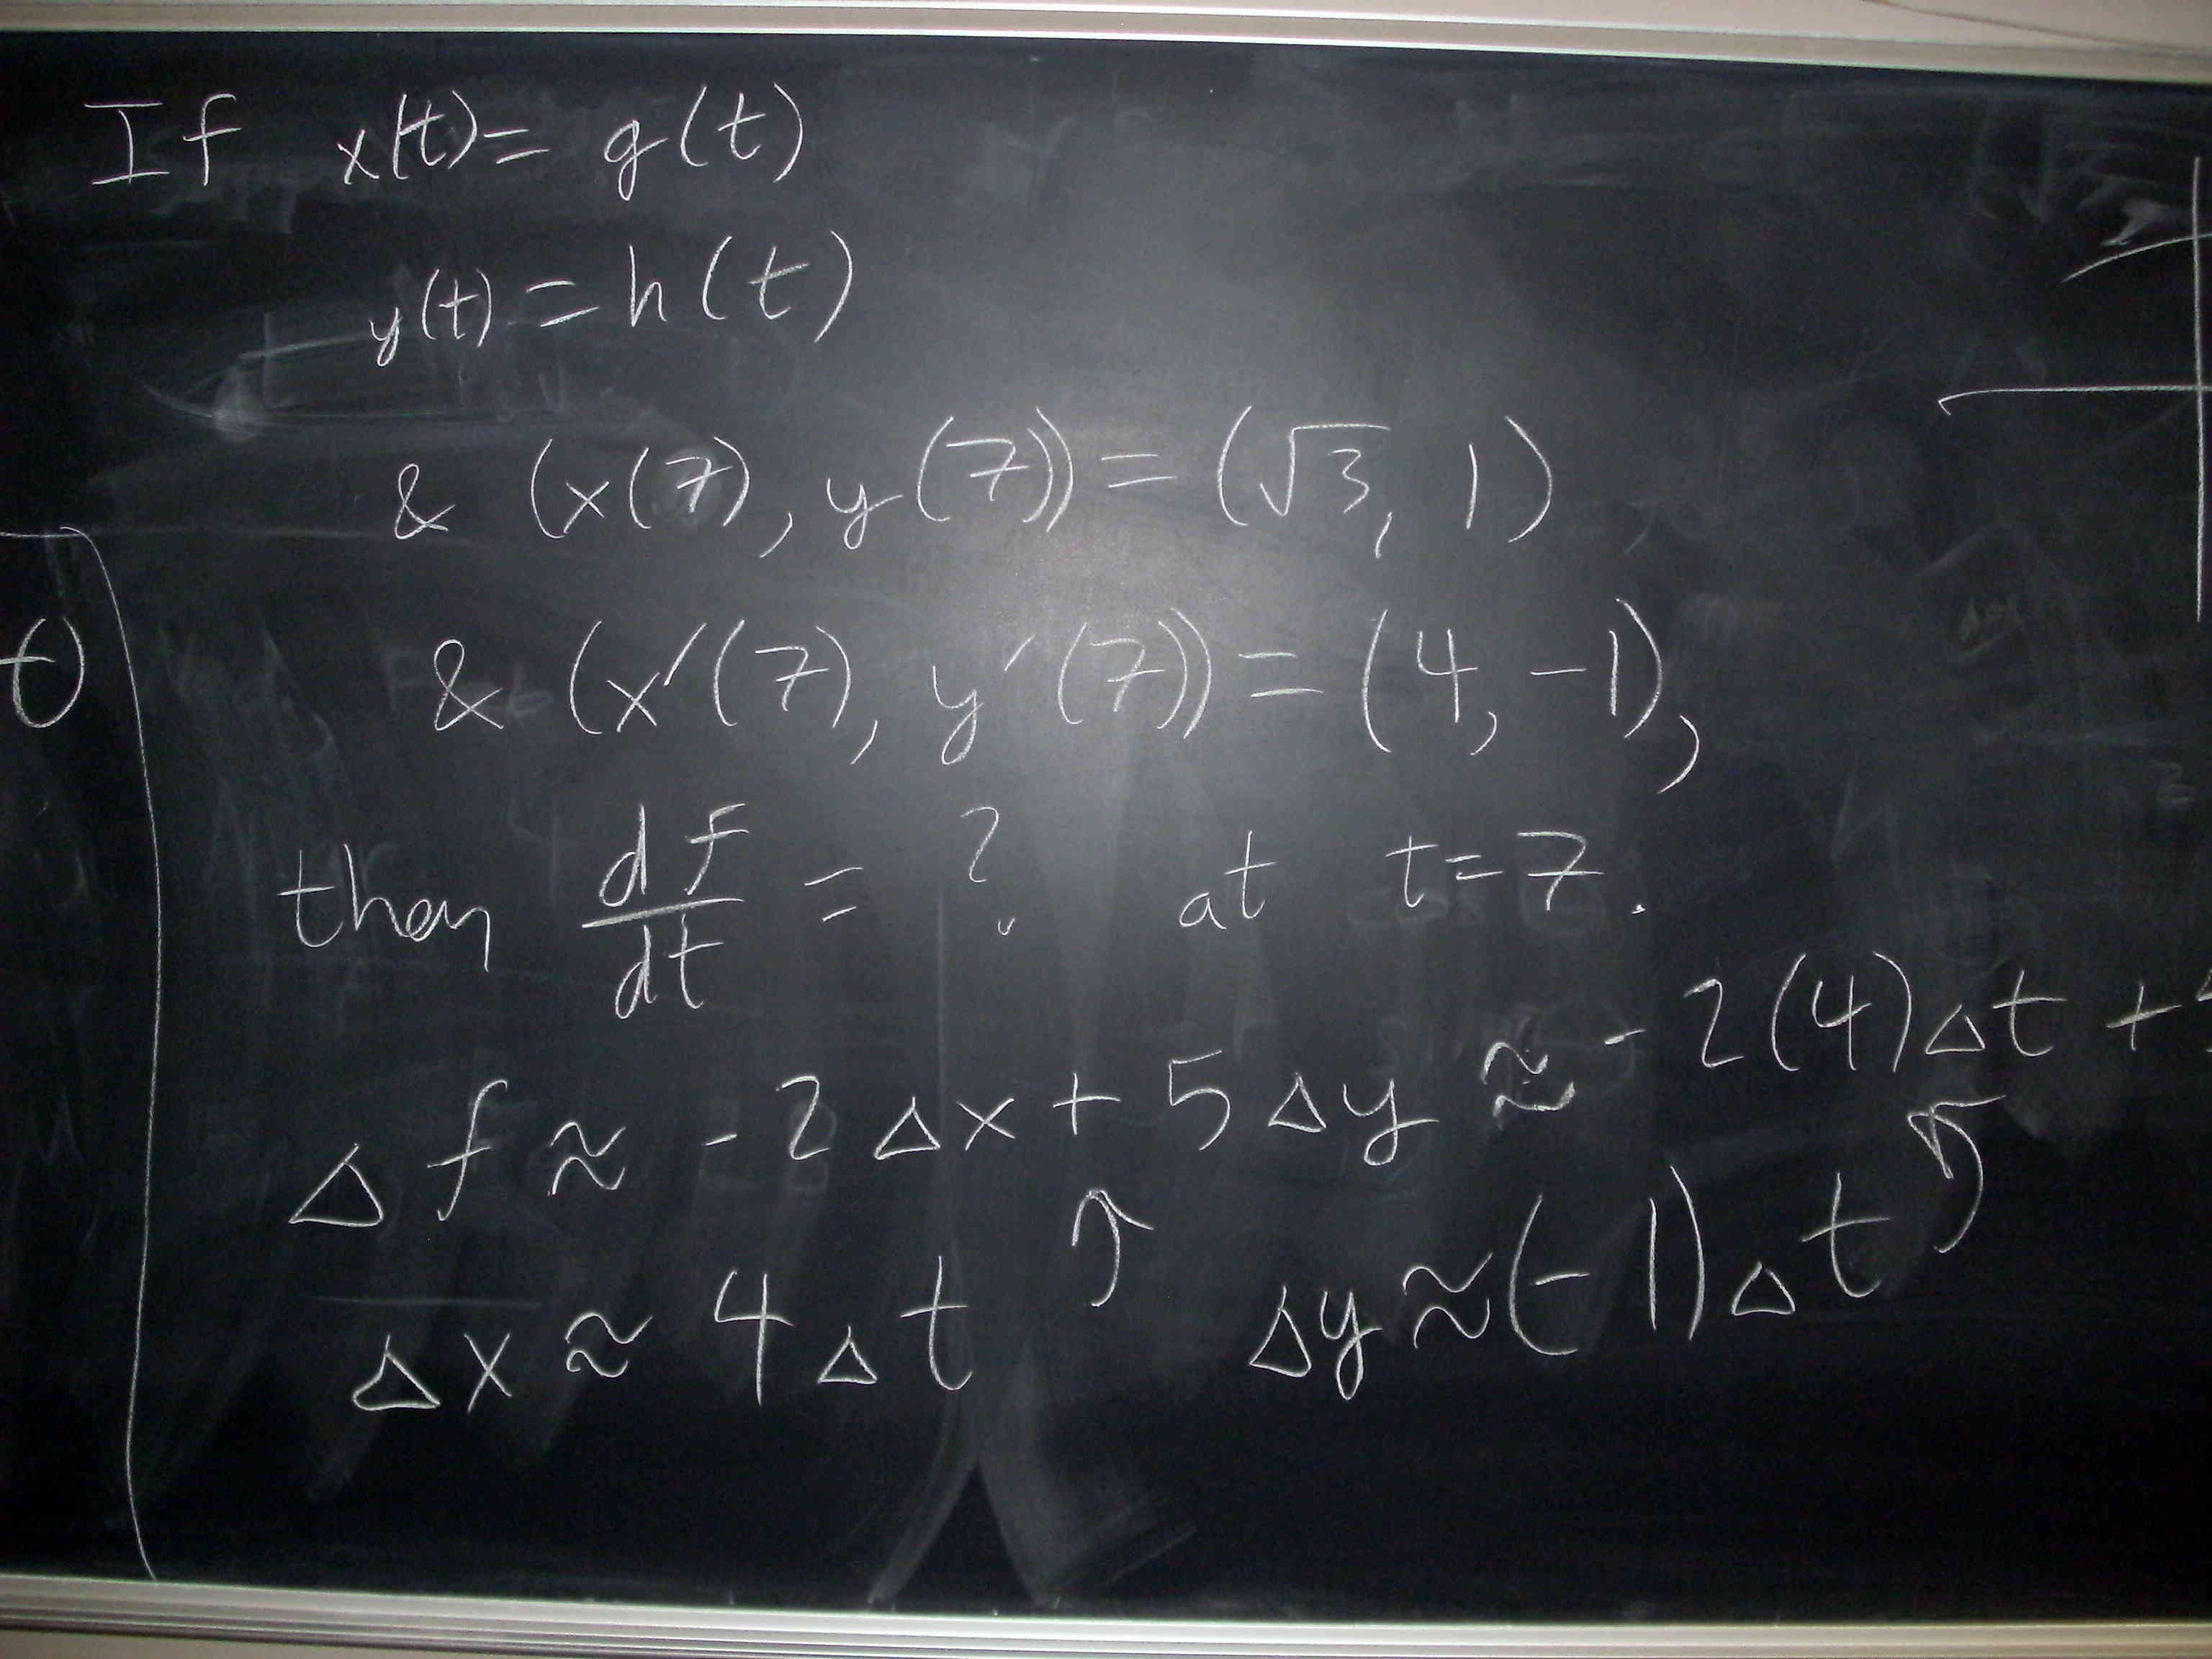 If x(t) = g(t)
y(t) = h(t)
& (x(7), y(7)) = (√3, 1)
& (x′(7), y′(7)) = (4, -1),
then df/dt = ? at t = 7.
Δf ≈ -2Δx + 5Δy ≈ -2(4)Δt +
Δx ≈ 4Δt Δy ≈ (-1)Δt